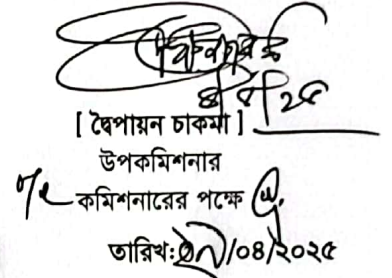 [ দ্বৈপায়ন চাকমা ]
উপকমিশনার
কমিশনারের পক্ষে
তারিখ: /০৪/২০২৫